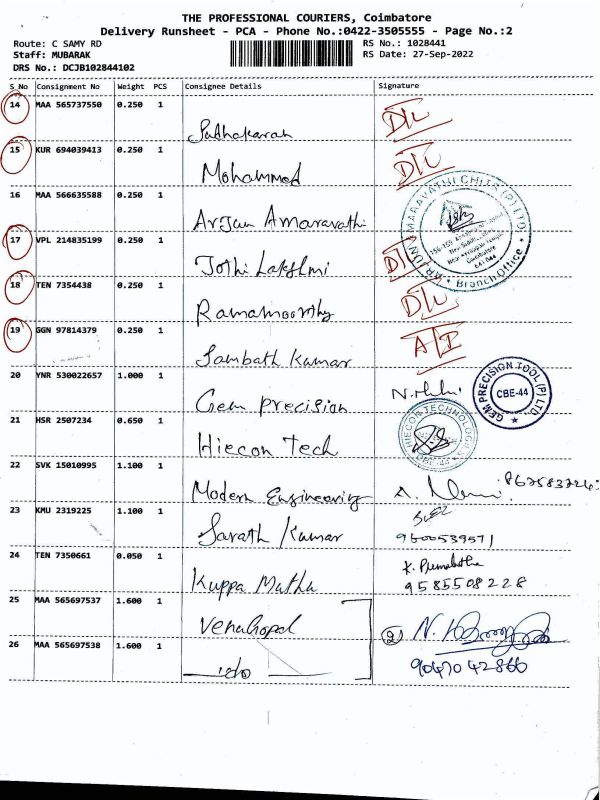 THE PROFESSIONAL COURIERS, Coimbatore
Delivery Runsheet - PCA - Phone No.:0422-3505555 - Page No.:2
Route: C SAMY RD RS No.: 1028441
Staff: MUBARAK RS Date: 27-Sep-2022
DRS No.: DCJB102844102
S_No Consignment No Weight PCS Consignee Details Signature
14 MAA 565737550 0.250 1
D/L
15 KUR 694039413 0.250 1
Mohammed D/L
16 MAA 566635588 0.250 1
Arjun Amaravathi
ARJUN AMARAVATHI CHITS (P) LTD
Branch Office
17 VPL 214835199 0.250 1
Jothi Lakshmi D/L
18 TEN 7354438 0.250 1
Ramamoorthy D/L
19 GGN 97814379 0.250 1
Sambath Kumar A/P
20 YNR 530022657 1.000 1
Gem Precision
GEM PRECISION TOOL(P) LTD
CBE-44
21 HSR 2507234 0.650 1
Hiecon Tech
HIECON TECHNOLOGY
22 SVK 15010995 1.100 1
Modern Engineering
23 KMU 2319225 1.100 1
Sarath Kumar
9600539571
24 TEN 7350661 0.050 1
Kuppa Matha
K. Premalatha
9585508228
25 MAA 565697537 1.600 1
Venu Gopal
26 MAA 565697538 1.600 1
(2)
9047042866